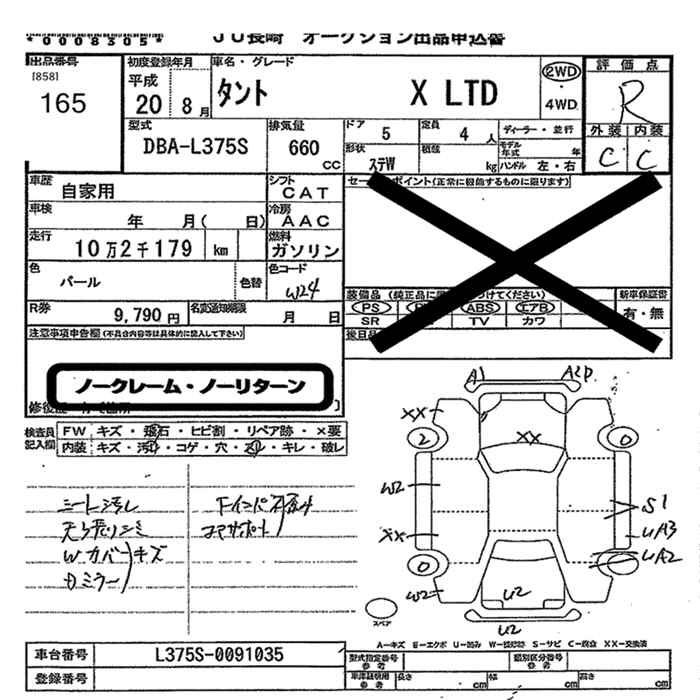 *0008305*
JU長崎 オークション出品申込書
出品番号
[858]
165
初度登録年月
平成
20 8月
車名・グレード
タント X LTD
2WD
・
4WD
評価点
R
外装 内装
C C
型式
DBA-L375S
排気量
660
CC
ドア
5
定員
4人
ディーラー・並行
形状
ステW
積載
kg
モデル年式 年
ハンドル 左・右
車歴
自家用
シフト
CAT
車検
年 月( 日)
冷房
AAC
走行
10万2千179 km
燃料
ガソリン
色
パール
色替
色コード
W24
R券
9,790円
名変通知期限
月 日
セールスポイント(正常に機能するものに限ります)
装備品 (純正品に つけてください)
新車保証書
PS ABS エアB
有・無
SR TV カワ
後日品
注意事項申告欄(不具合内容等は具体的に記入して下さい)
ノークレーム・ノーリターン
検査員
記入欄
FW キズ・飛石・ヒビ割・リペア跡・×要
内装 キズ・汚れ・コゲ・穴・スレ・キレ・破レ
シート汚レ
天張りシミ
Wカバーキズ
Dミラー
コアサポート
A1
XX
2
XX
0
W2
S1
XX
UA3
0
UA2
W2
U2
U2
スペア
A-キズ E-エクボ U-凹み W-補修跡 S-サビ C-腐食 XX-交換済
車台番号
L375S-0091035
登録番号
型式指定番号
参考
類別区分番号
参考
車庫証明用
参考
長さ cm
幅 cm
高さ cm